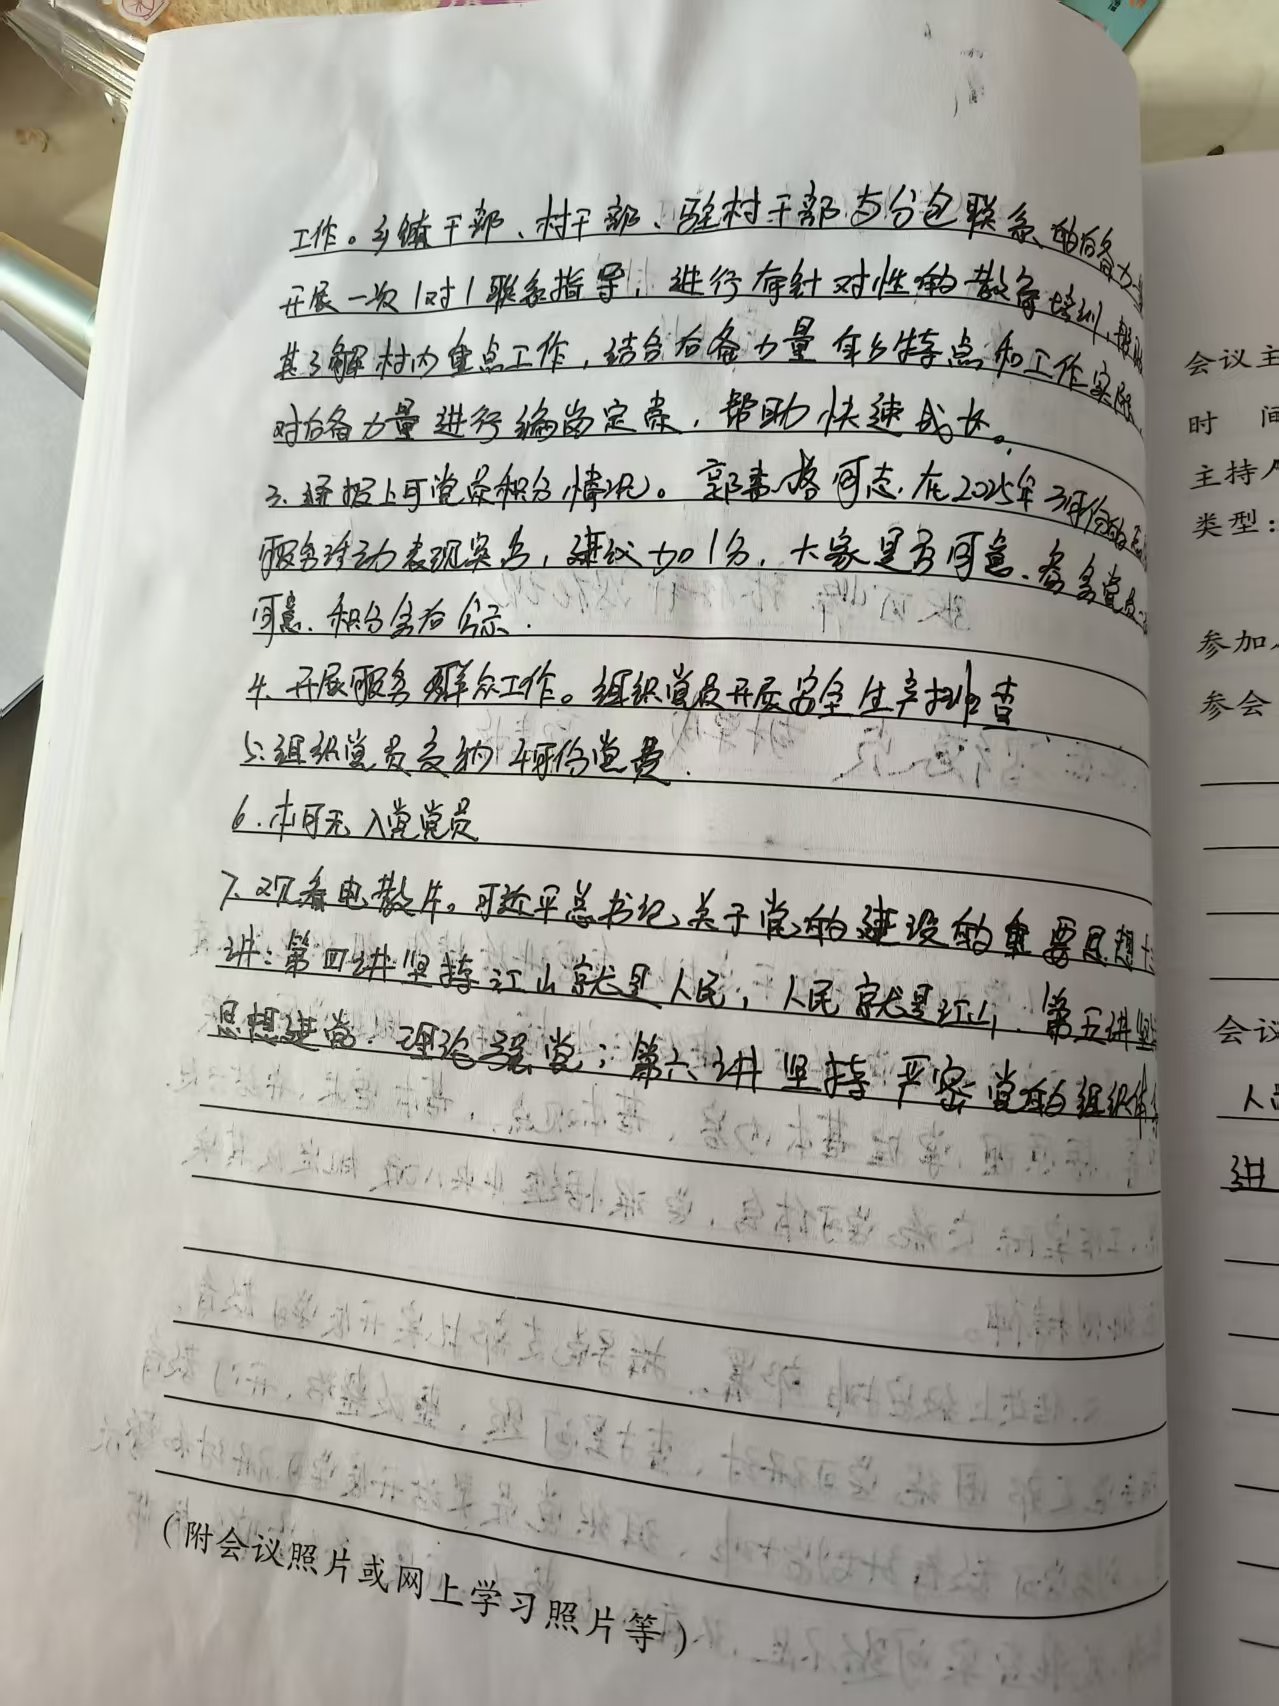 工作。乡镇干部、村干部、驻村干部与分包联系的后备力量
开展一次1对1联系指导,进行有针对性的教育培训,帮助
其了解村内重点工作,结合后备力量年乡特点和工作实际
对后备力量进行编岗定责,帮助快速成长。
3.通报上月党员积分情况。郭素格同志,在2025年3月份的
服务活动表现突出,建议加1分,大家是否同意、参会党员
同意、积分会后公示.
4.开展服务群众工作。组织党员开展安全生产排查
5.组织党员交纳4月份党费.
6.本月无入党党员
7.观看电教片。习近平总书记关于党的建设的重要思想十三
讲:第四讲坚持江山就是人民,人民就是江山,第五讲坚持
思想建党、理论强党;第六讲坚持严密党的组织体
(附会议照片或网上学习照片等)
会议主
时 间
主持人
类型:
参加人
参会
会议
人
讲